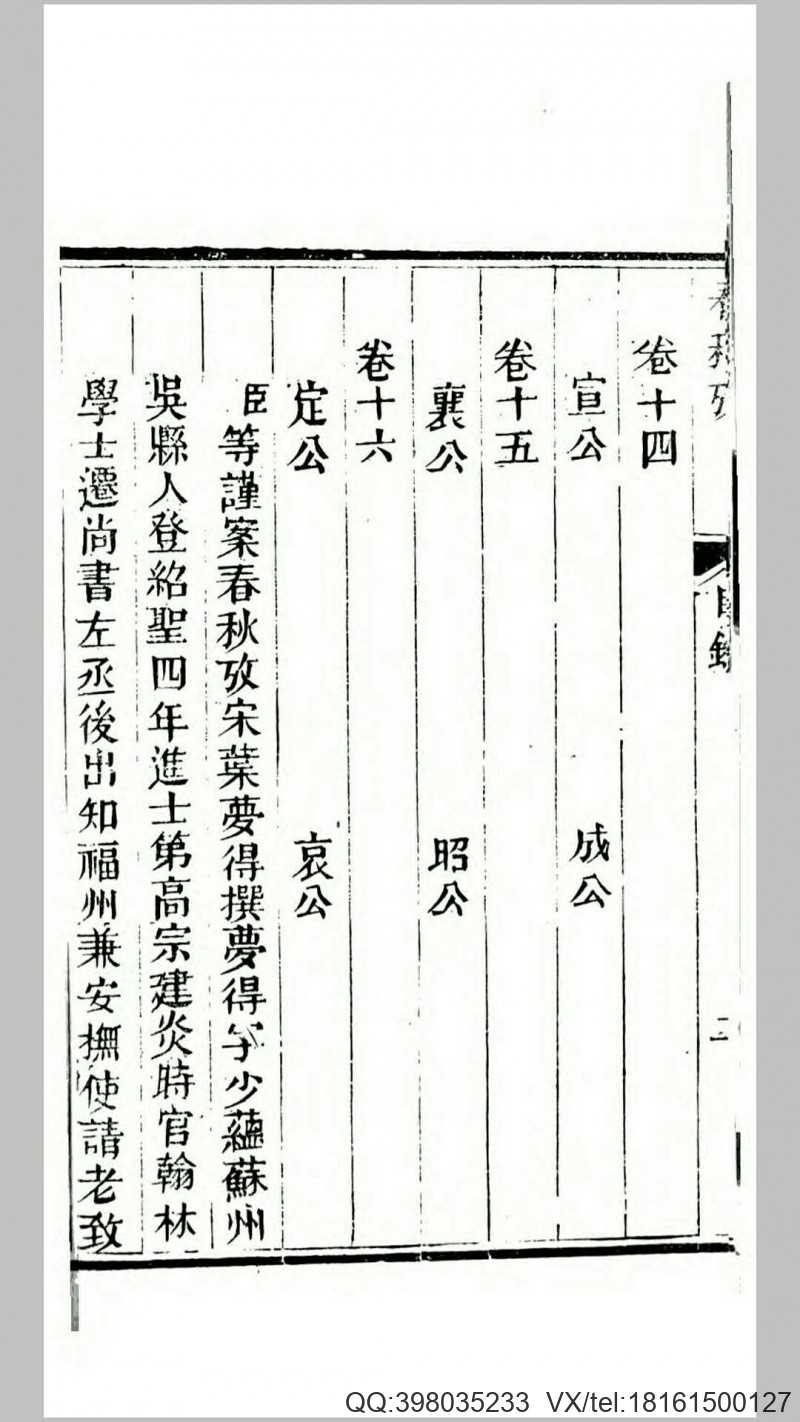 春秋攷
目錄
二
卷十四
宣公 成公
卷十五
襄公 昭公
卷十六
定公 哀公
臣等謹案春秋攷宋葉夢得撰夢得字少蘊蘇州
吳縣人登紹聖四年進士第高宗建炎時官翰林
學士遷尚書左丞後出知福州兼安撫使請老致
QQ:398035233 VX/tel:18161500127